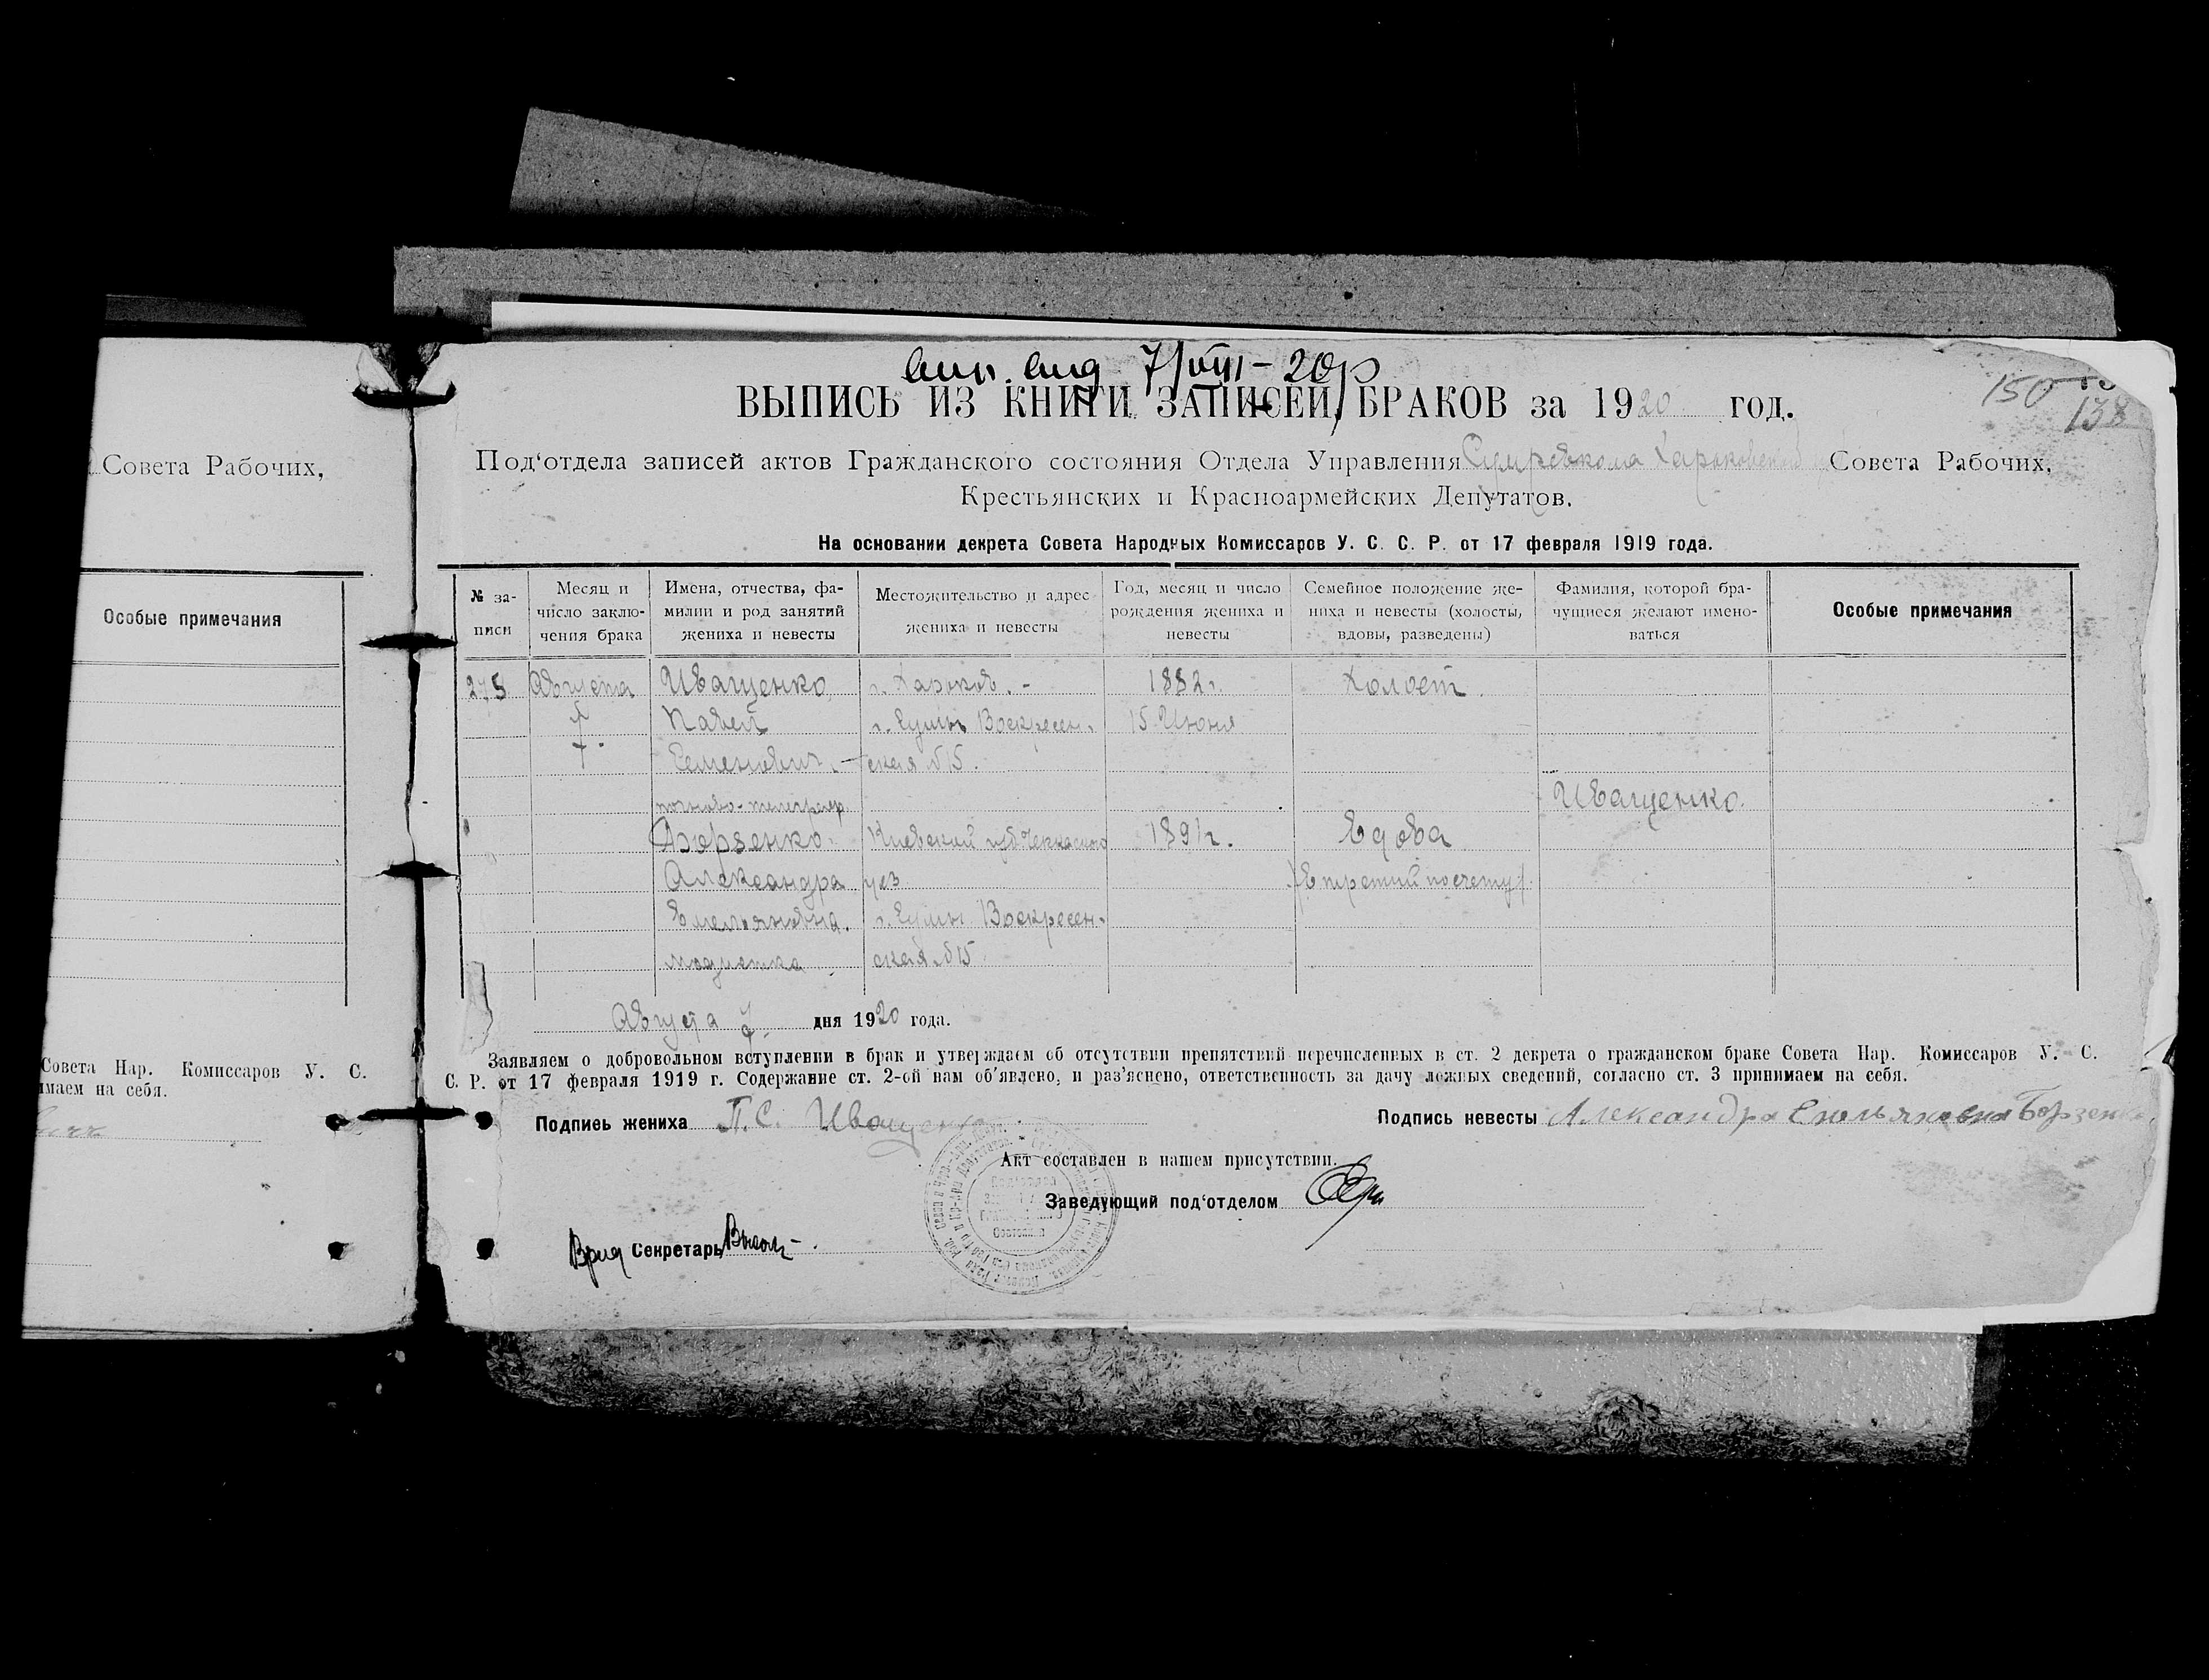 Совета Рабочих,
Особые примечания
Совета Нар. Комиссаров У. С.
имаем на себя.
вып. выд. 7/VIII-20р
ВЫПИСЬ ИЗ КНИГИ ЗАПИСЕЙ БРАКОВ за 1920 год.
150
138
Под‘отдела записей актов Гражданского состояния Отдела Управления Харьковской Совета Рабочих,
Крестьянских и Красноармейских Депутатов.
На основании декрета Совета Народных Комиссаров У. С. С. Р. от 17 февраля 1919 года.
№ за-
писи
Месяц и
число заклю-
чения брака
Имена, отчества, фа-
милии и род занятий
жениха и невесты
Местожительство и адрес
жениха и невесты
Год, месяц и число
рождения жениха и
невесты
Семейное положение же-
ниха и невесты (холосты,
вдовы, разведены)
Фамилия, которой бра-
чущиеся желают имено-
ваться
Особые примечания
275 Августа Иващенко г. Харьков. - 1882г. Холост.
7 Павел г. Сумы Воскресен- 15 Июня
Семенович. - ская №15.
почтово-телеграф. Иващенко.
Борзенко. Киевской губ Черкасского 1891г. Вдова
Александра уез (В третий по счету)
Емельяновна. г. Сумы Воскресен-
модистка ская №15
Августа 7 дня 1920 года.
Заявляем о добровольном вступлении в брак и утверждаем об отсутствии препятствий перечисленных в ст. 2 декрета о гражданском браке Совета Нар. Комиссаров У. С.
С. Р. от 17 февраля 1919 г. Содержание ст. 2-ой нам об‘явлено, и раз‘яснено, ответственность за дачу ложных сведений, согласно ст. 3 принимаем на себя.
Подпись жениха П. С. Иващенко
Подпись невесты Александра Емельяновна Борзенко
Акт составлен в нашем присутствии.
Заведующий под‘отделом
Врид Секретарь